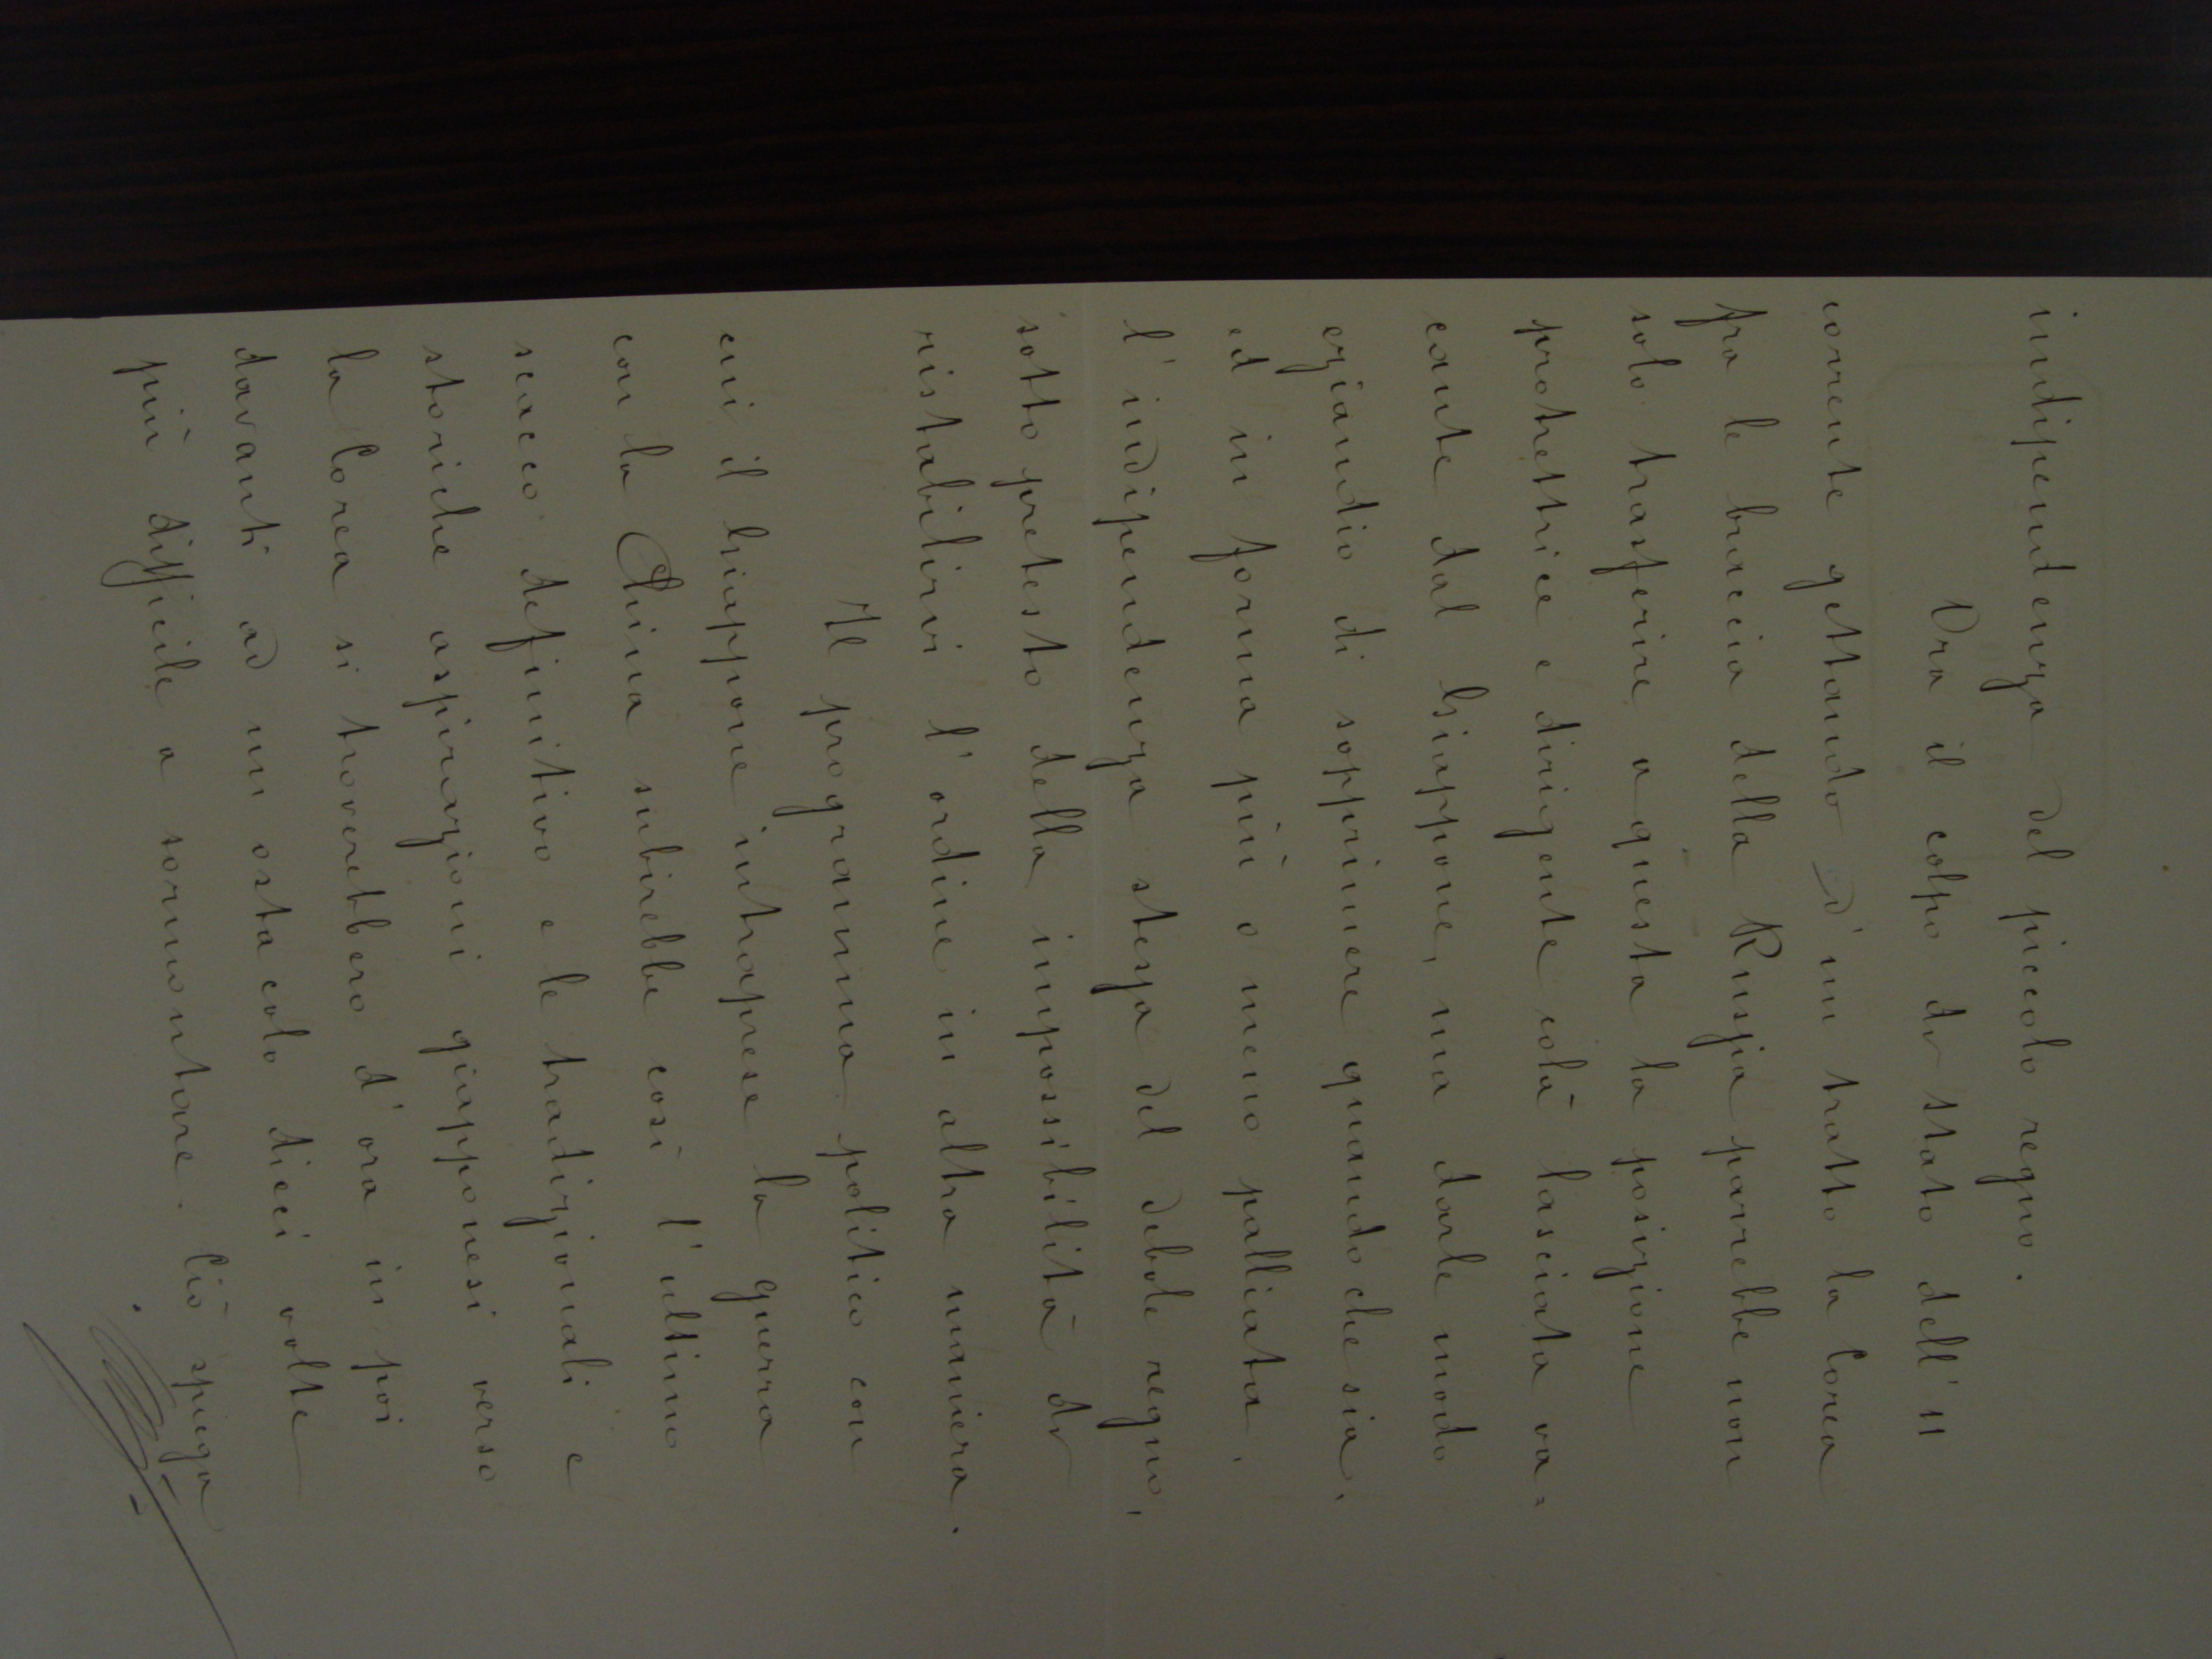 indipendenza del piccolo regno.
Ora il colpo di stato dell' 11
corrente gettando d'un tratto la Corea
fra le braccia della Russia parrebbe non
solo trasferire a questa la posizione
protettrice e dirigente colà lasciata va=
cante dal Giappone, ma darle modo
eziandio di sopprimere quandochesia,
ed in forma più o meno palliata,
l'indipendenza stessa del debole regno,
sotto pretesto della impossibilità di
ristabilirvi l'ordine in altra maniera.
Il programma politico con
cui il Giappone intraprese la guerra
con la China subirebbe così l'ultimo
scacco definitivo e le tradizionali e
storiche aspirazioni giapponesi verso
la Corea si troverebbero d'ora in poi
davanti ad un ostacolo dieci volte
più difficile a sormontare. Ciò spiega